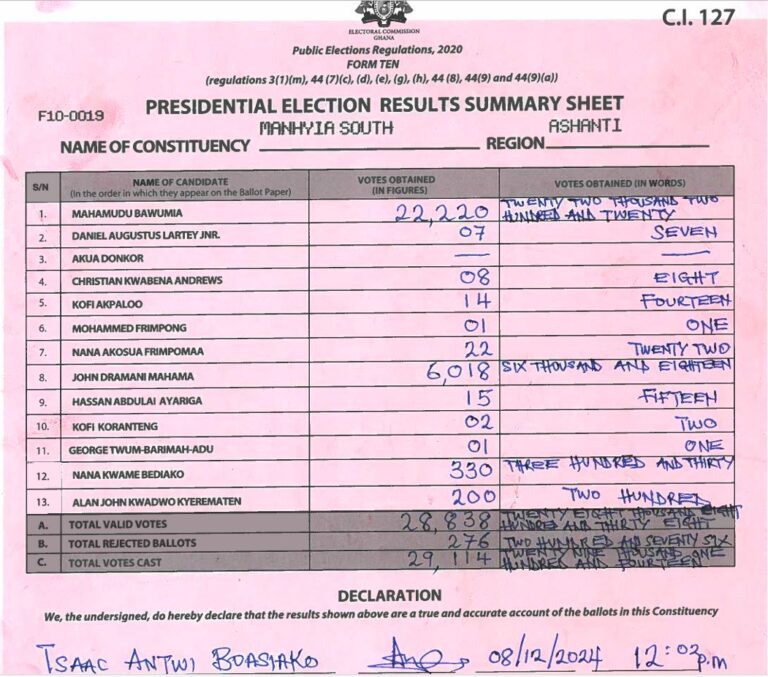 C.I. 127
ELECTORAL COMMISSION
GHANA
Public Elections Regulations, 2020
FORM TEN
(regulations 3(1)(m), 44 (7)(c), (d), (e), (g), (h), 44 (8), 44(9) and 44(9)(a))
F10-0019
PRESIDENTIAL ELECTION RESULTS SUMMARY SHEET
NAME OF CONSTITUENCY MANHYIA SOUTH REGION ASHANTI
S/N NAME OF CANDIDATE (In the order in which they appear on the Ballot Paper) VOTES OBTAINED (IN FIGURES) VOTES OBTAINED (IN WORDS)
1. MAHAMUDU BAWUMIA 22,220 TWENTY TWO THOUSAND TWO HUNDRED AND TWENTY
2. DANIEL AUGUSTUS LARTEY JNR. 07 SEVEN
3. AKUA DONKOR — —
4. CHRISTIAN KWABENA ANDREWS 08 EIGHT
5. KOFI AKPALOO 14 FOURTEEN
6. MOHAMMED FRIMPONG 01 ONE
7. NANA AKOSUA FRIMPOMAA 22 TWENTY TWO
8. JOHN DRAMANI MAHAMA 6,018 SIX THOUSAND AND EIGHTEEN
9. HASSAN ABDULAI AYARIGA 15 FIFTEEN
10. KOFI KORANTENG 02 TWO
11. GEORGE TWUM-BARIMAH-ADU 01 ONE
12. NANA KWAME BEDIAKO 330 THREE HUNDRED AND THIRTY
13. ALAN JOHN KWADWO KYEREMATEN 200 TWO HUNDRED
A. TOTAL VALID VOTES 28,838 TWENTY EIGHT THOUSAND EIGHT HUNDRED AND THIRTY EIGHT
B. TOTAL REJECTED BALLOTS 276 TWO HUNDRED AND SEVENTY SIX
C. TOTAL VOTES CAST 29,114 TWENTY NINE THOUSAND ONE HUNDRED AND FOURTEEN
DECLARATION
We, the undersigned, do hereby declare that the results shown above are a true and accurate account of the ballots in this Constituency
ISAAC ANTWI BOASIAKO 08/12/2024 12:02 p.m